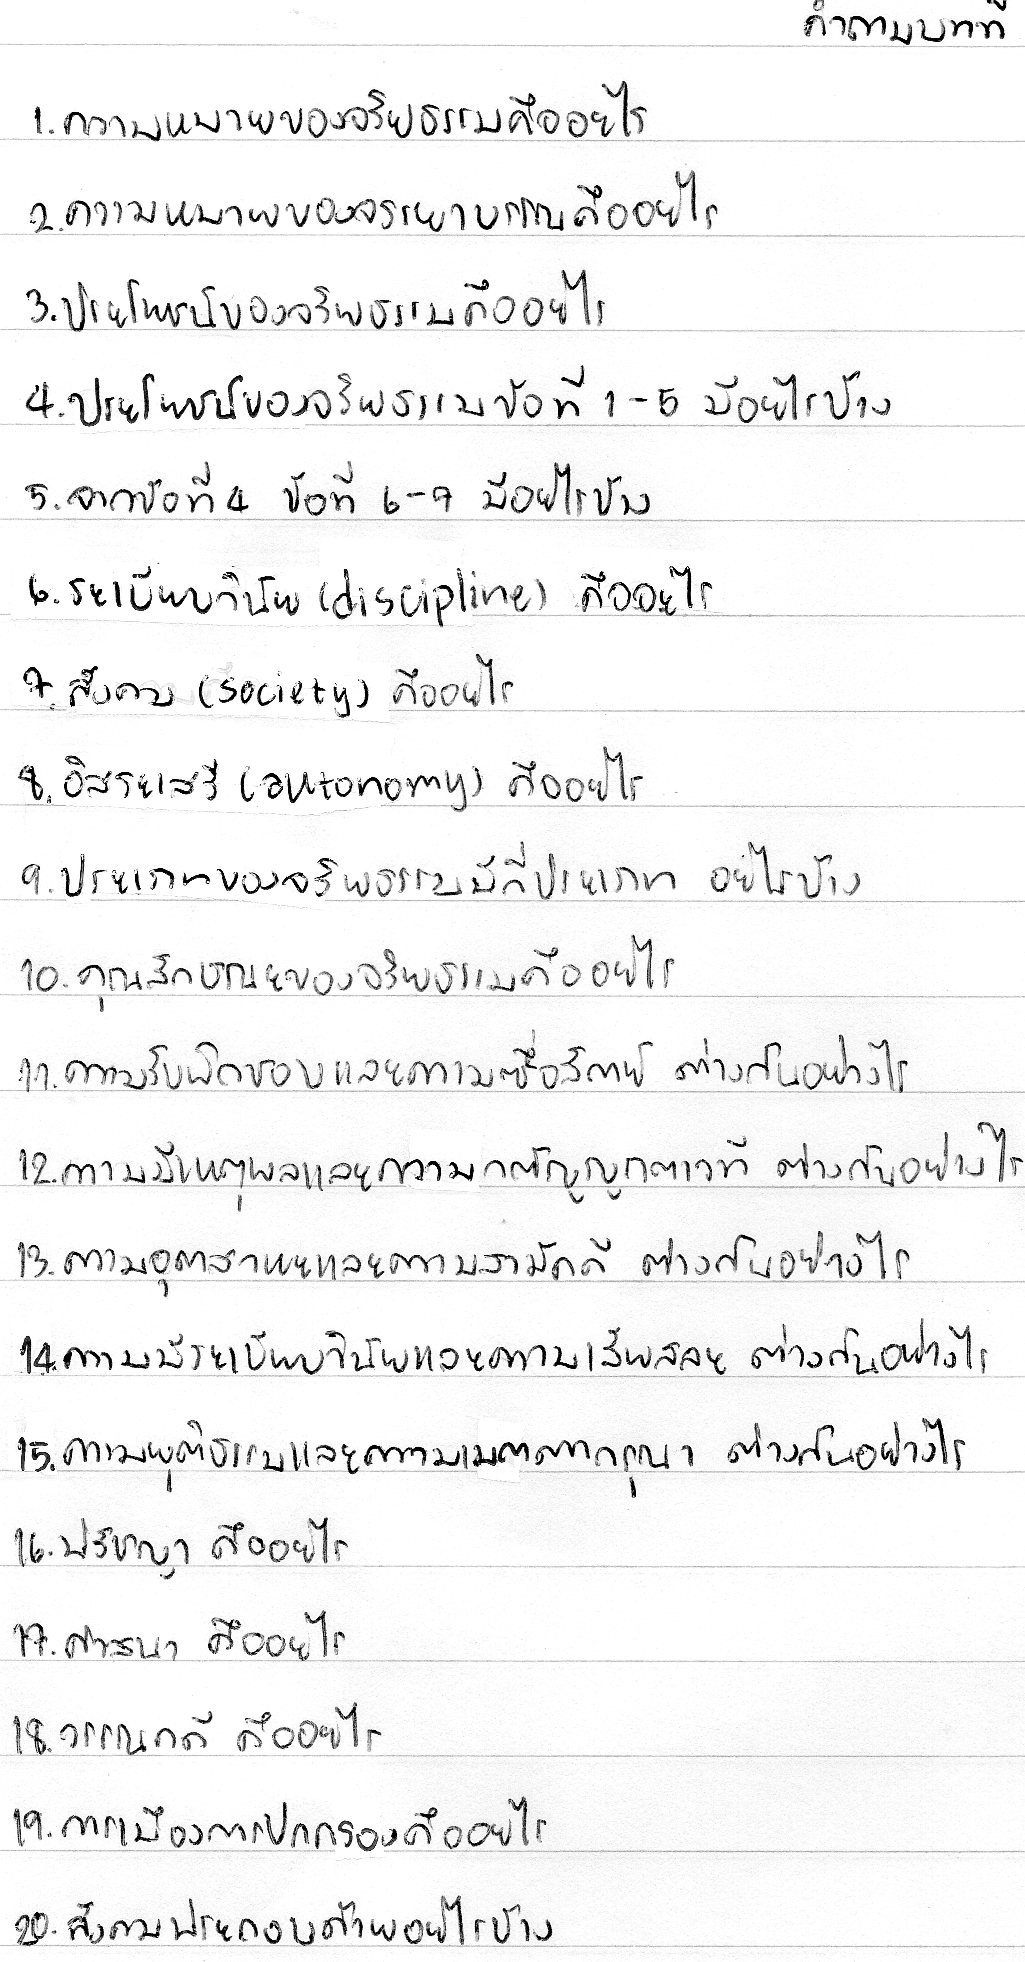 คำถามบทที่
1.ความหมายของจริยธรรมคืออะไร
2.ความหมายของจรรยาบรรณคืออะไร
3.ประโยชน์ของจริยธรรมคืออะไร
4.ประโยชน์ของจริยธรรมข้อที่ 1-5 มีอะไรบ้าง
5.จากข้อที่ 4 ข้อที่ 6-9 มีอะไรบ้าง
6.ระเบียบวินัย (discipline) คืออะไร
7.สังคม (society) คืออะไร
8.อิสระเสรี (autonomy) คืออะไร
9.ประเภทของจริยธรรมมีกี่ประเภท อะไรบ้าง
10.คุณลักษณะของจริยธรรมคืออะไร
11.ความรับผิดชอบและความซื่อสัตย์ ต่างกันอย่างไร
12.ความมีเหตุผลและความกตัญญูกตเวที ต่างกันอย่างไร
13.ความอุตสาหะและความสามัคคี ต่างกันอย่างไร
14.ความมีระเบียบวินัยและความเสียสละ ต่างกันอย่างไร
15.ความยุติธรรมและความเมตตากรุณา ต่างกันอย่างไร
16.ปรัชญา คืออะไร
17.ศาสนา คืออะไร
18.วรรณคดี คืออะไร
19.การเมืองการปกครองคืออะไร
20.สังคมประกอบด้วยอะไรบ้าง